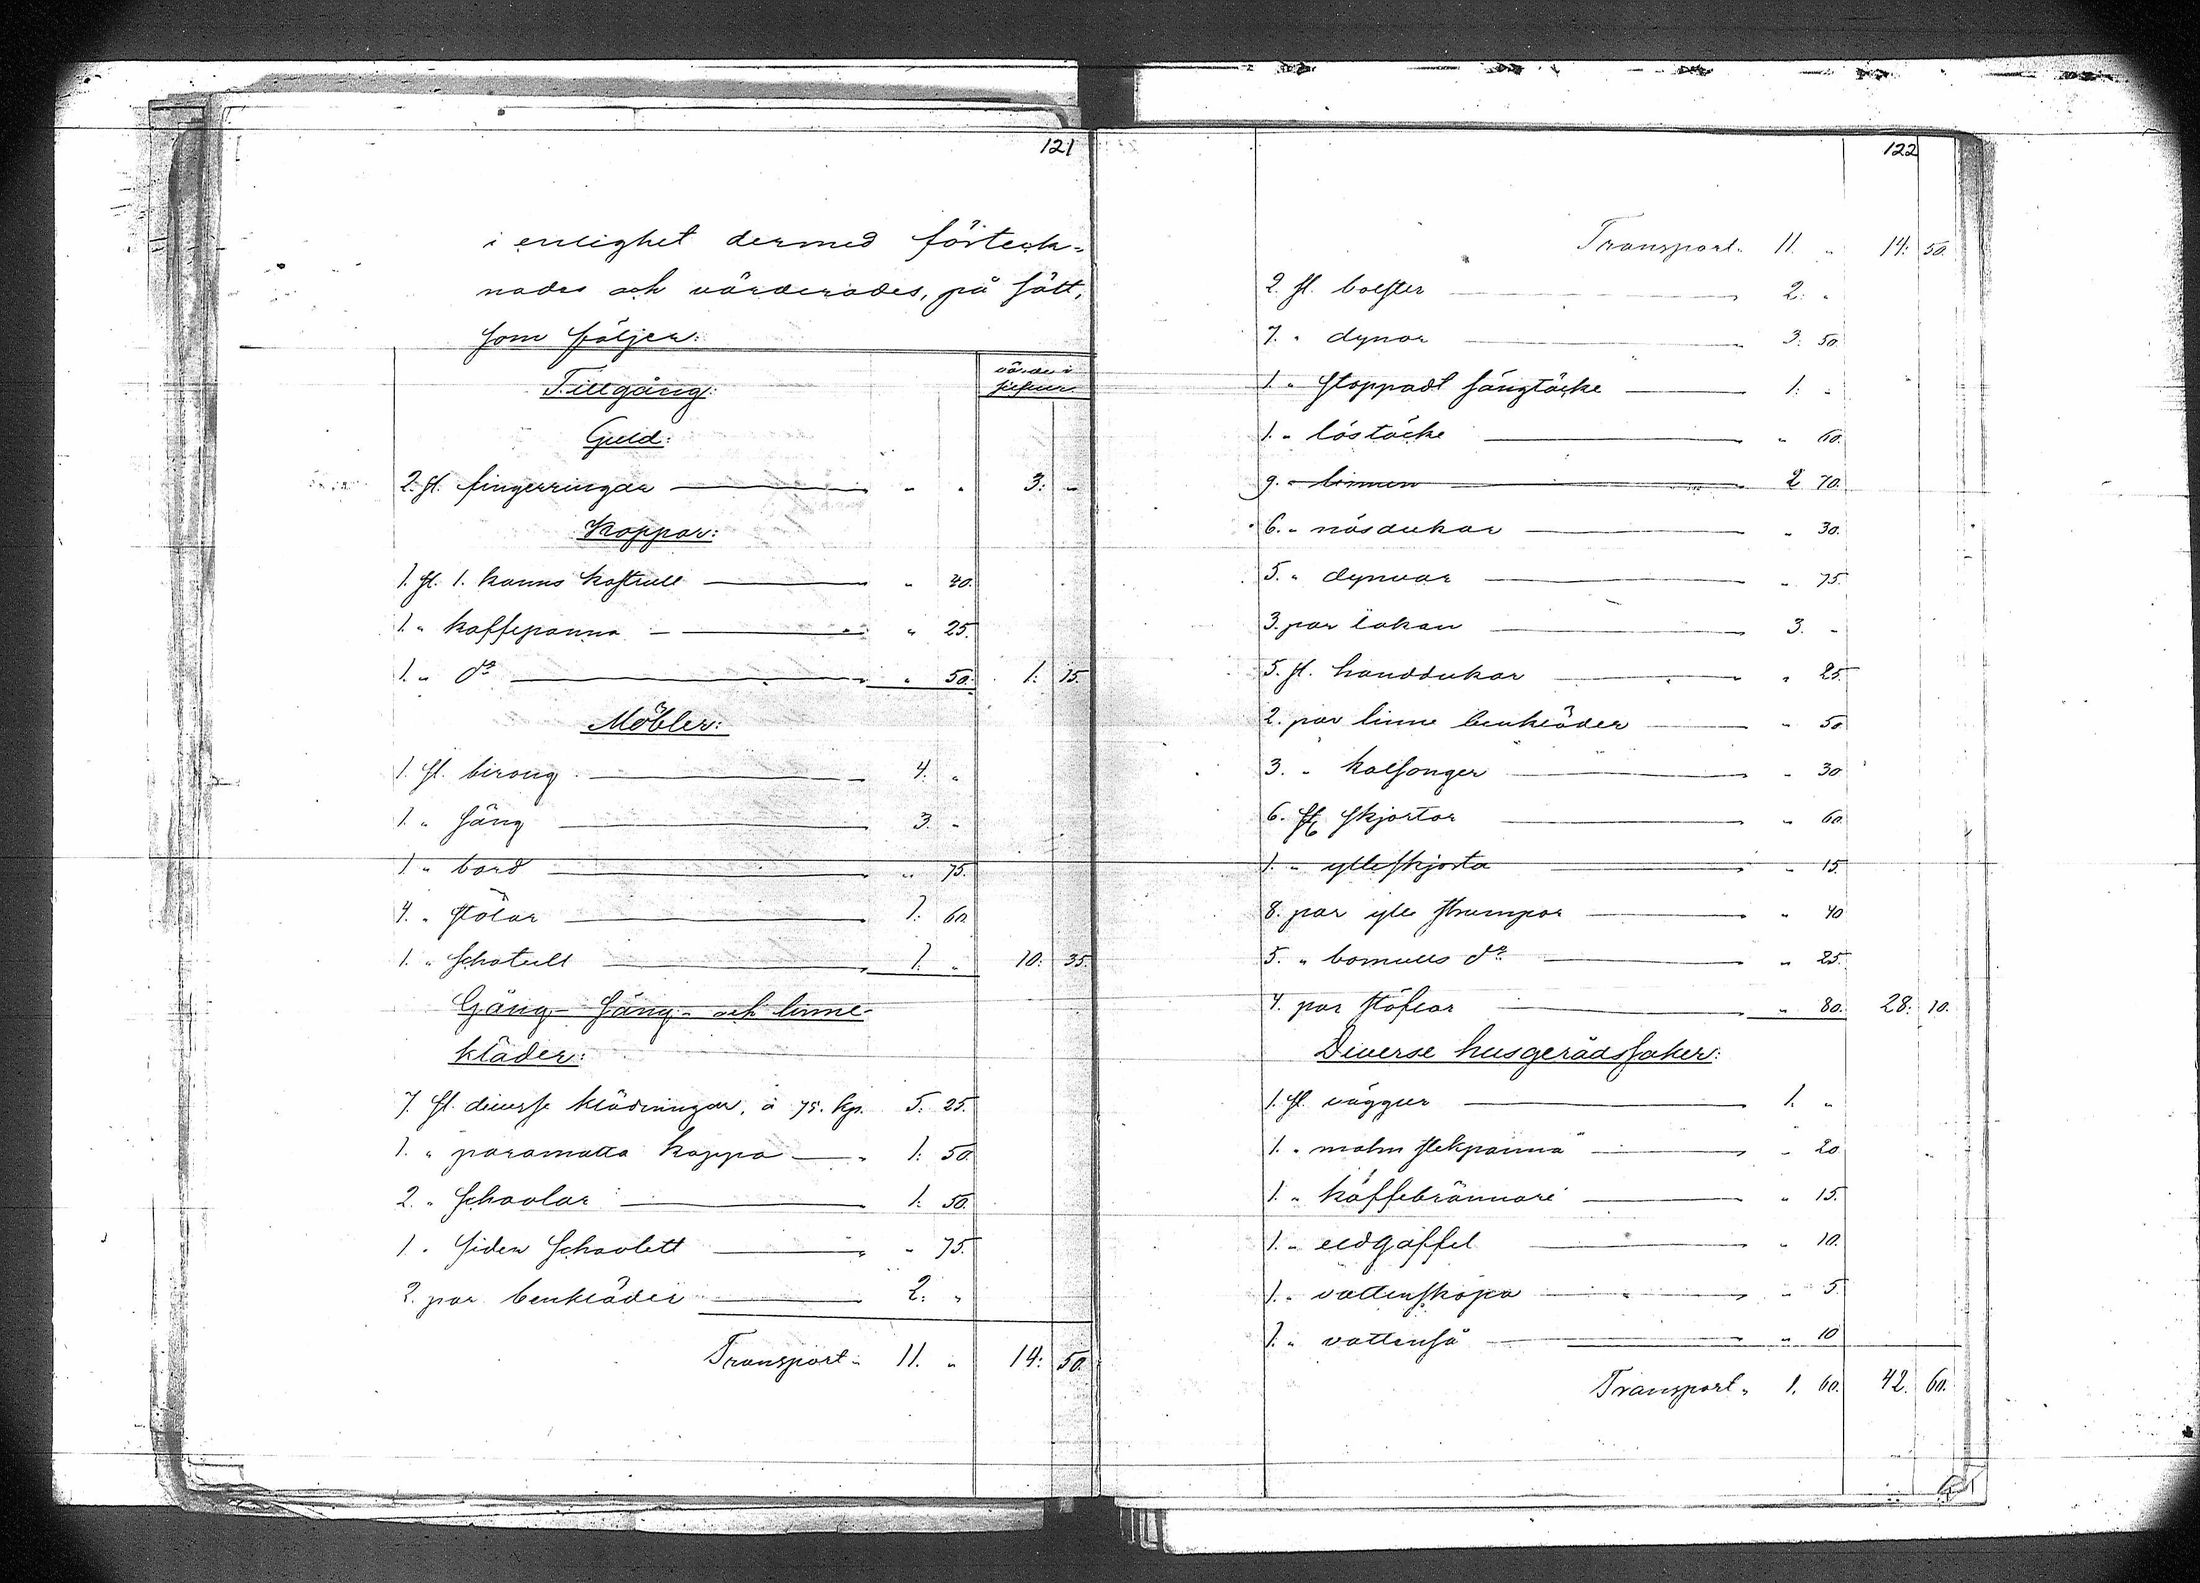 121
i enlighet dermed förteck-
nades och värderades, på sätt,
som följer:
Tillgång: värde i silfver
Guld:
2. st. fingerringar — " " 3: "
Koppar:
1. st. 1. kanns kastrull — " 40.
1. " kaffepanna — " 25.
1. " d:o — " 50. 1: 15.
Möbler:
1. st. birong — 4. "
1. " säng — 3. "
1. " bord — " 75.
4. " stolar — 1: 60.
1. " schatull — 1. " 10: 35.
Gång- Säng- och linne-
kläder:
7. st. diverse klädningar, à 75. kp. 5. 25.
1. " paramatta kappa — 1: 50.
2. " schavlar — 1: 50.
1. " siden schavlett — " 75.
2. par benkläder — 2: "
Transport " 11. " 14: 50.
122
Transport " 11. " 14: 50.
2. st. bolster — 2: "
7. " dynor — 3: 50
1. " stoppadt sängtäcke — 1: "
1. " löstäcke — " 60.
9. " linnen — 2 70.
6. " näsdukar — " 30.
5. " dynvar — " 75.
3. par lakan — 3. "
5. st. handdukar — " 25.
2. par linne benkläder — " 50
3. " kalsonger — " 30
6. st. skjortor — " 60.
1. " ylleskjorta — " 15.
8. par ylle strumpor — " 40
5. " bomulls d:o — " 25.
4. par stöflar — " 80. 28: 10.
Diverse husgerådssaker:
1. st. väggur — 1. "
1. " malm stekpanna — " 20
1. " kaffebrännare — " 15.
1. " eldgaffel — " 10.
1. " vattenskopa — " 5.
1. " vattenså — " 10
Transport " 1. 60. 42. 60.